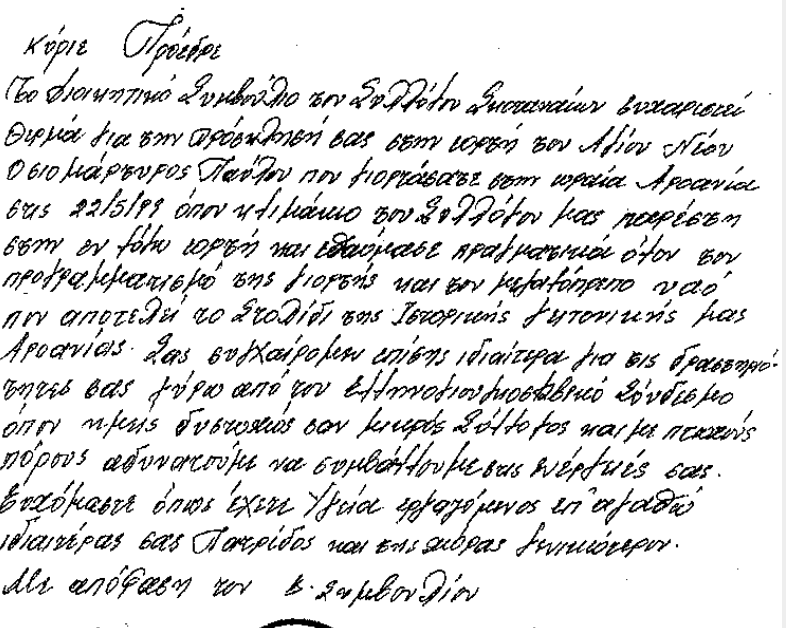 Κύριε Πρόεδρε
Το Διοικητικό Συμβούλιο του Συλλόγου Σκοταναίων ευχαριστεί
θερμά για την πρόσκλησή σας στην εορτή του Αγίου Νέου
Οσιομάρτυρος Παύλου που γιορτάσατε στην ωραία Αροανία
στις 22/5/99 όπου κλιμάκιο του Συλλόγου μας παρέστη
στην εν λόγω εορτή και εθαύμασε πραγματικά όλον τον
προγραμματισμό της γιορτής και τον μεγαλόπρεπο ναό
που αποτελεί το Στολίδι της Ιστορικής γειτονικής μας
Αροανίας. Σας συγχαίρομεν επίσης ιδιαίτερα για τις δραστηριό-
τητες σας γύρω από τον Ελληνογιουγκοσλαβικό Σύνδεσμο
όπου ημείς δυστυχώς σαν μικρός Σύλλογος και με πτωχούς
πόρους αδυνατούμε να συμβάλλουμε στις ενέργειές σας.
Ευχόμαστε όπως έχετε Υγεία εργαζόμενος επ' αγαθώ
ιδιαιτέρας σας Πατρίδος και της χώρας γενικότερον.
Με απόφαση του Δ. Συμβουλίου